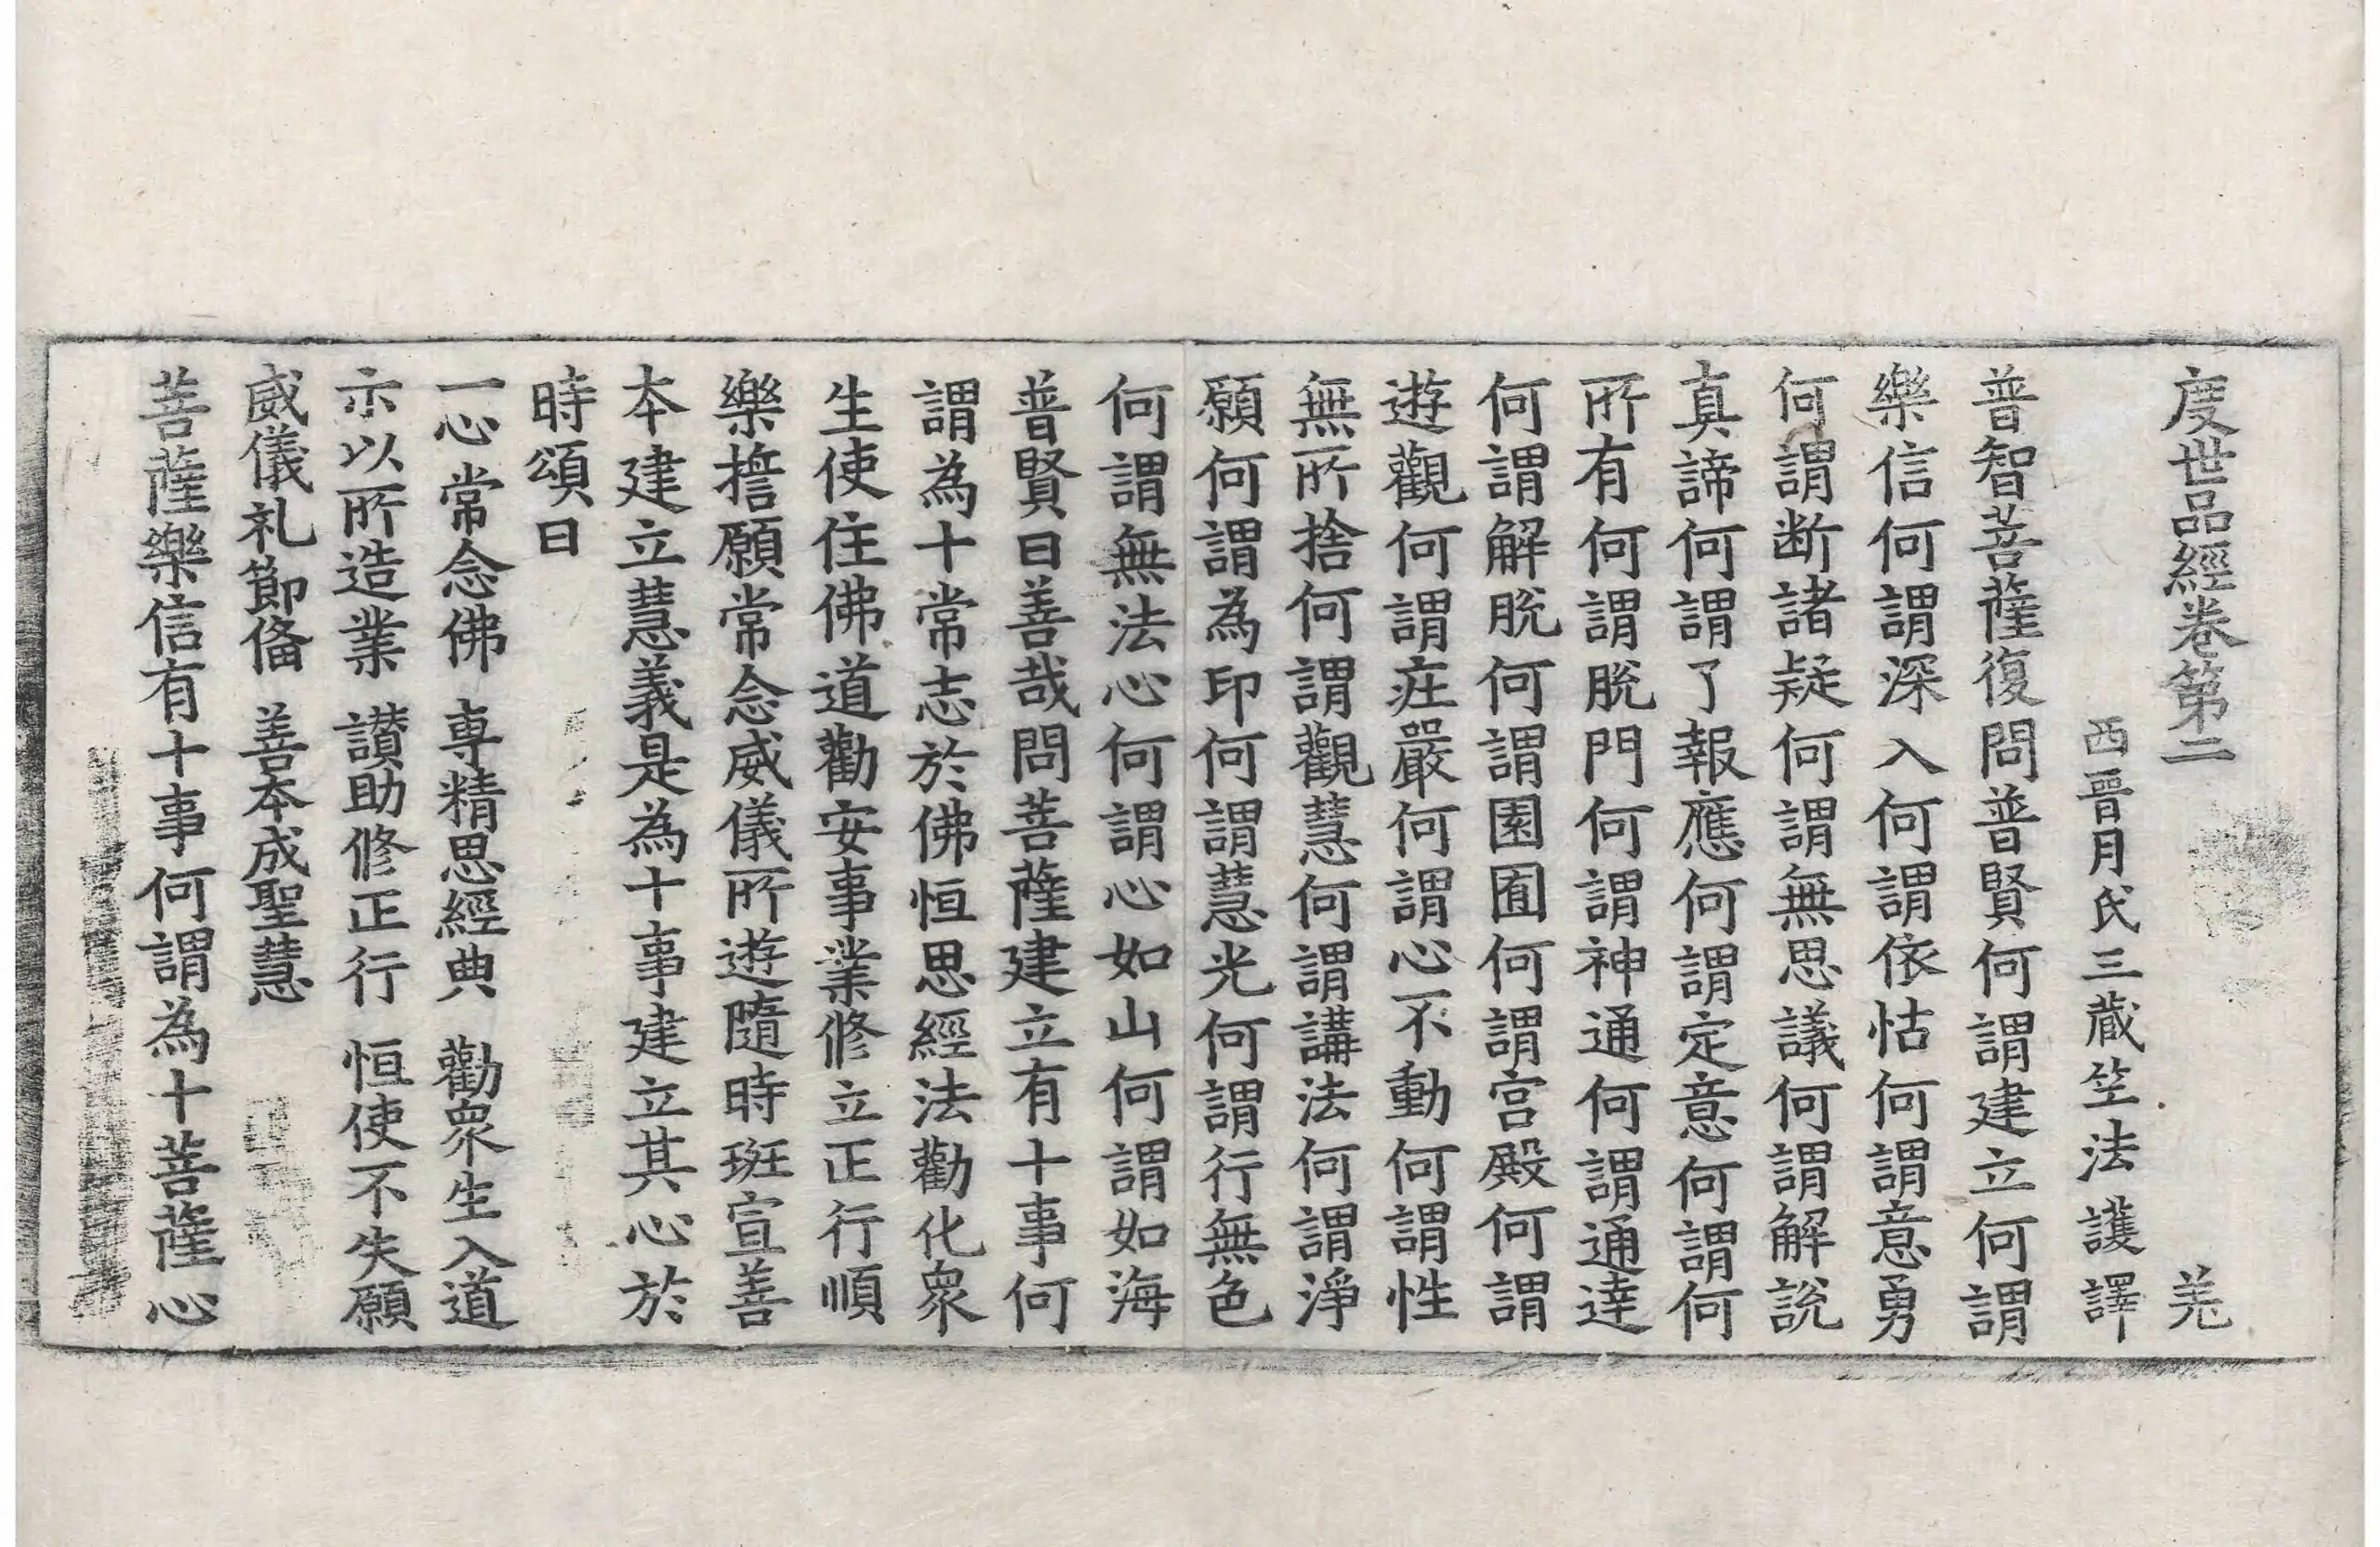 度世品經卷第二 羌
西晉月氏三藏竺法護譯
普智菩薩復問普賢何謂建立何謂
樂信何謂深入何謂依怙何謂意勇
何謂断諸疑何謂無思議何謂解説
真諦何謂了報應何謂定意何謂何
所有何謂脫門何謂神通何謂通達
何謂解脫何謂園囿何謂宮殿何謂
遊觀何謂庄嚴何謂心不動何謂性
無所捨何謂觀慧何謂講法何謂淨
願何謂為印何謂慧光何謂行無色
何謂無法心何謂心如山何謂如海
普賢曰善哉問菩薩建立有十事何
謂為十常志於佛恒思經法勸化衆
生使住佛道勸安事業修立正行順
樂擔願常念威儀所遊隨時班宣善
本建立慧義是為十事建立其心於
時頌曰
一心常念佛 專精思經典 勸衆生入道
示以所造業 讃助修正行 恒使不失願
威儀礼節俻 善本成聖慧
菩薩樂信有十事何謂為十菩薩心